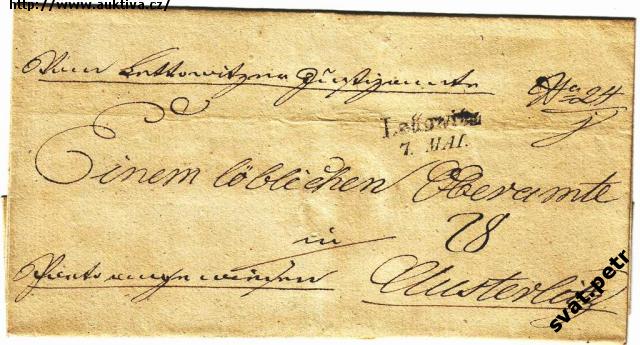 http://www.auktiva.cz/
Vom Lettowitzer Justizamte
No 24
Lettowitz
7. MAI.
Einem löblichen Oberamte
in
28
Austerlitz
svat.petr